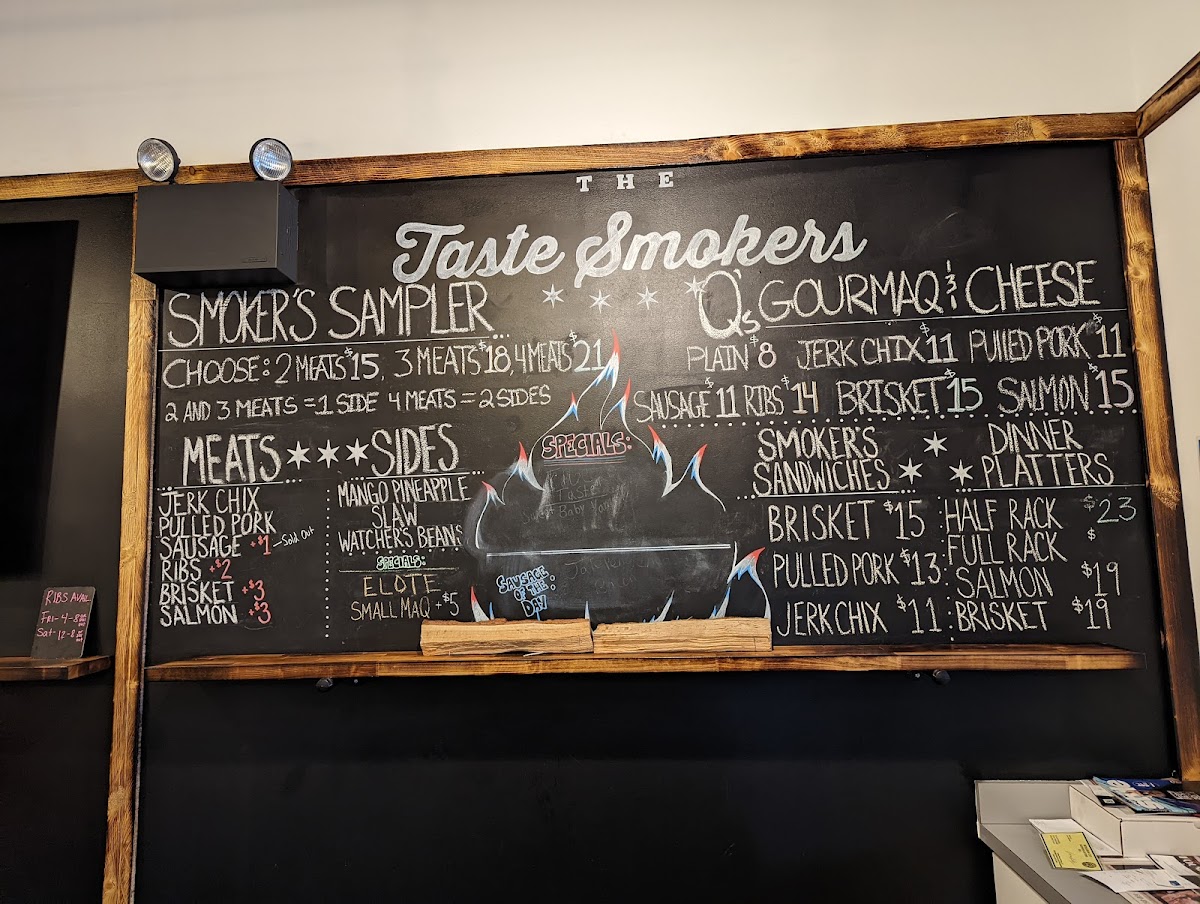 THE
Taste Smokers
SMOKER'S SAMPLER
CHOOSE: 2 MEATS $15, 3 MEATS $18, 4 MEATS $21
2 AND 3 MEATS = 1 SIDE 4 MEATS = 2 SIDES
MEATS
JERK CHIX
PULLED PORK
SAUSAGE +$1 - Sold Out
RIBS +$2
BRISKET +$3
SALMON +$3
SIDES
MANGO PINEAPPLE
SLAW
WATCHER'S BEANS
SPECIALS:
ELOTE
SMALL MAQ +$5
SPECIALS:
SAUSAGE
OF THE
DAY
Q's GOURMAQ & CHEESE
PLAIN $8 JERK CHIX $11 PULLED PORK $11
SAUSAGE $11 RIBS $14 BRISKET $15 SALMON $15
SMOKER'S
SANDWICHES
BRISKET $15
PULLED PORK $13
JERK CHIX $11
DINNER
PLATTERS
HALF RACK $23
FULL RACK $
SALMON $19
BRISKET $19
RIBS AVAIL
FRI- 4-8
SAT- 12-8